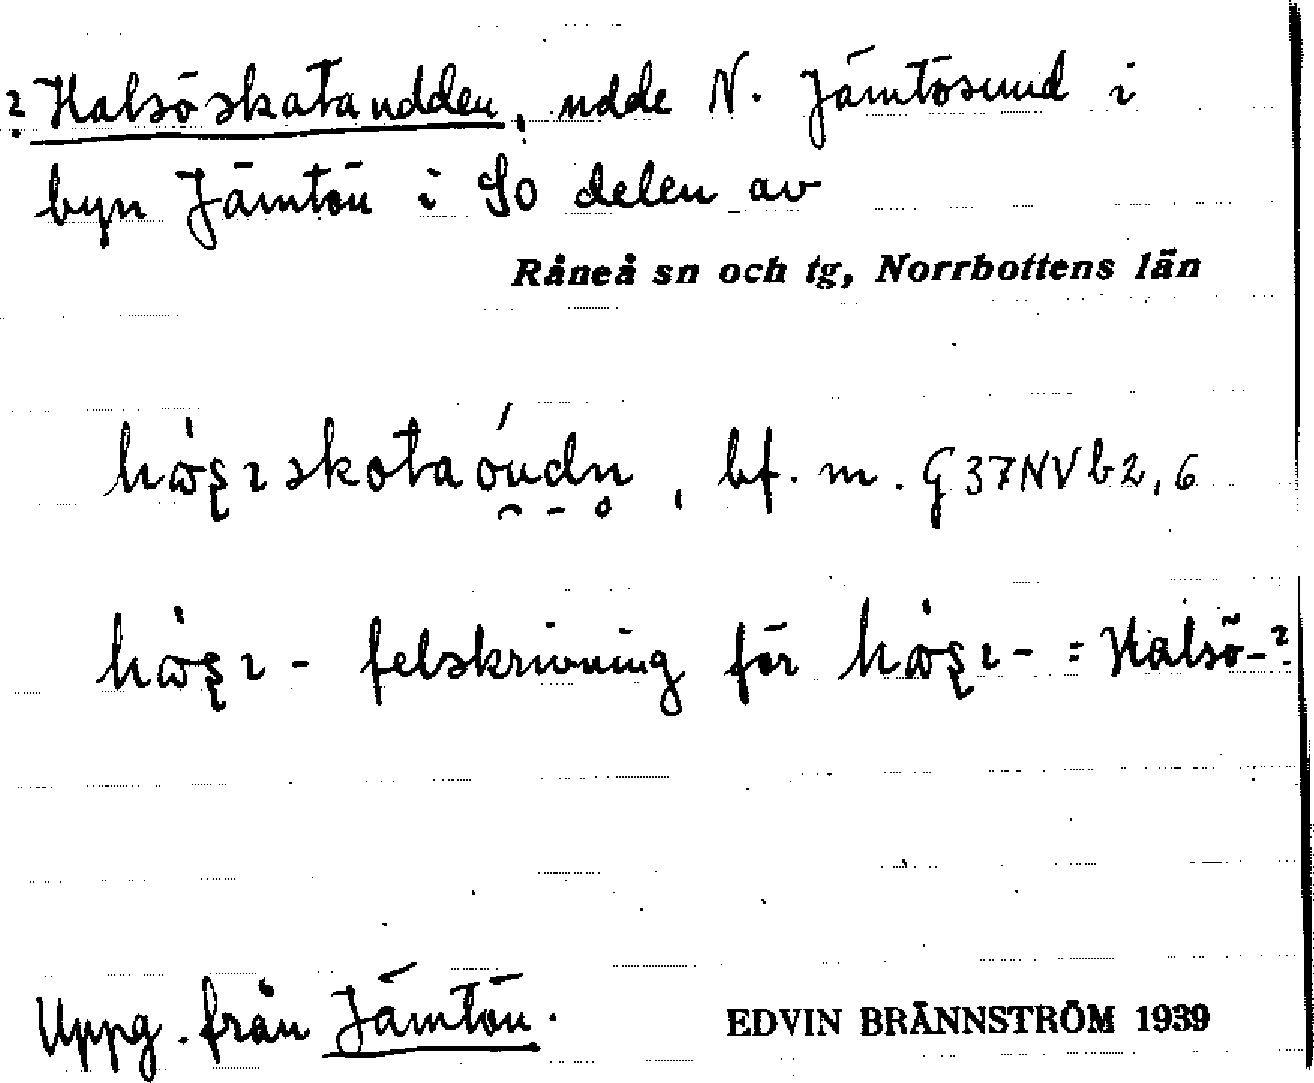 ? Halsöskataudden, udde N. Jämtösund i
byn Jämtön i So delen av
Råneå sn och tg, Norrbottens län
bf. m. G 37 NV b 2, 6
felskrivning för = Halsö-?
Uppg. från Jämtön.
EDVIN BRÄNNSTRÖM 1939